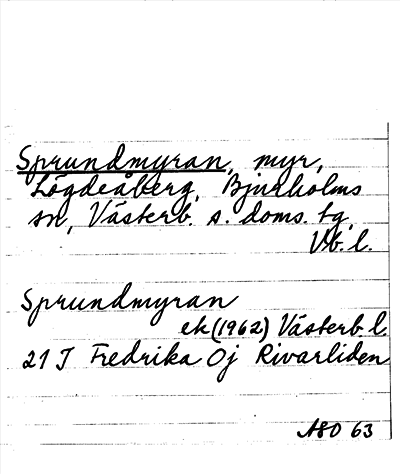 Sprundmyran, myr,
Lögdeåberg, Bjurholms
sn, Västerb. s. doms. tg,
Vb. l.
Sprundmyran
ek (1962) Västerb. l.
21 J Fredrika Öj Rivarliden
ASO 63